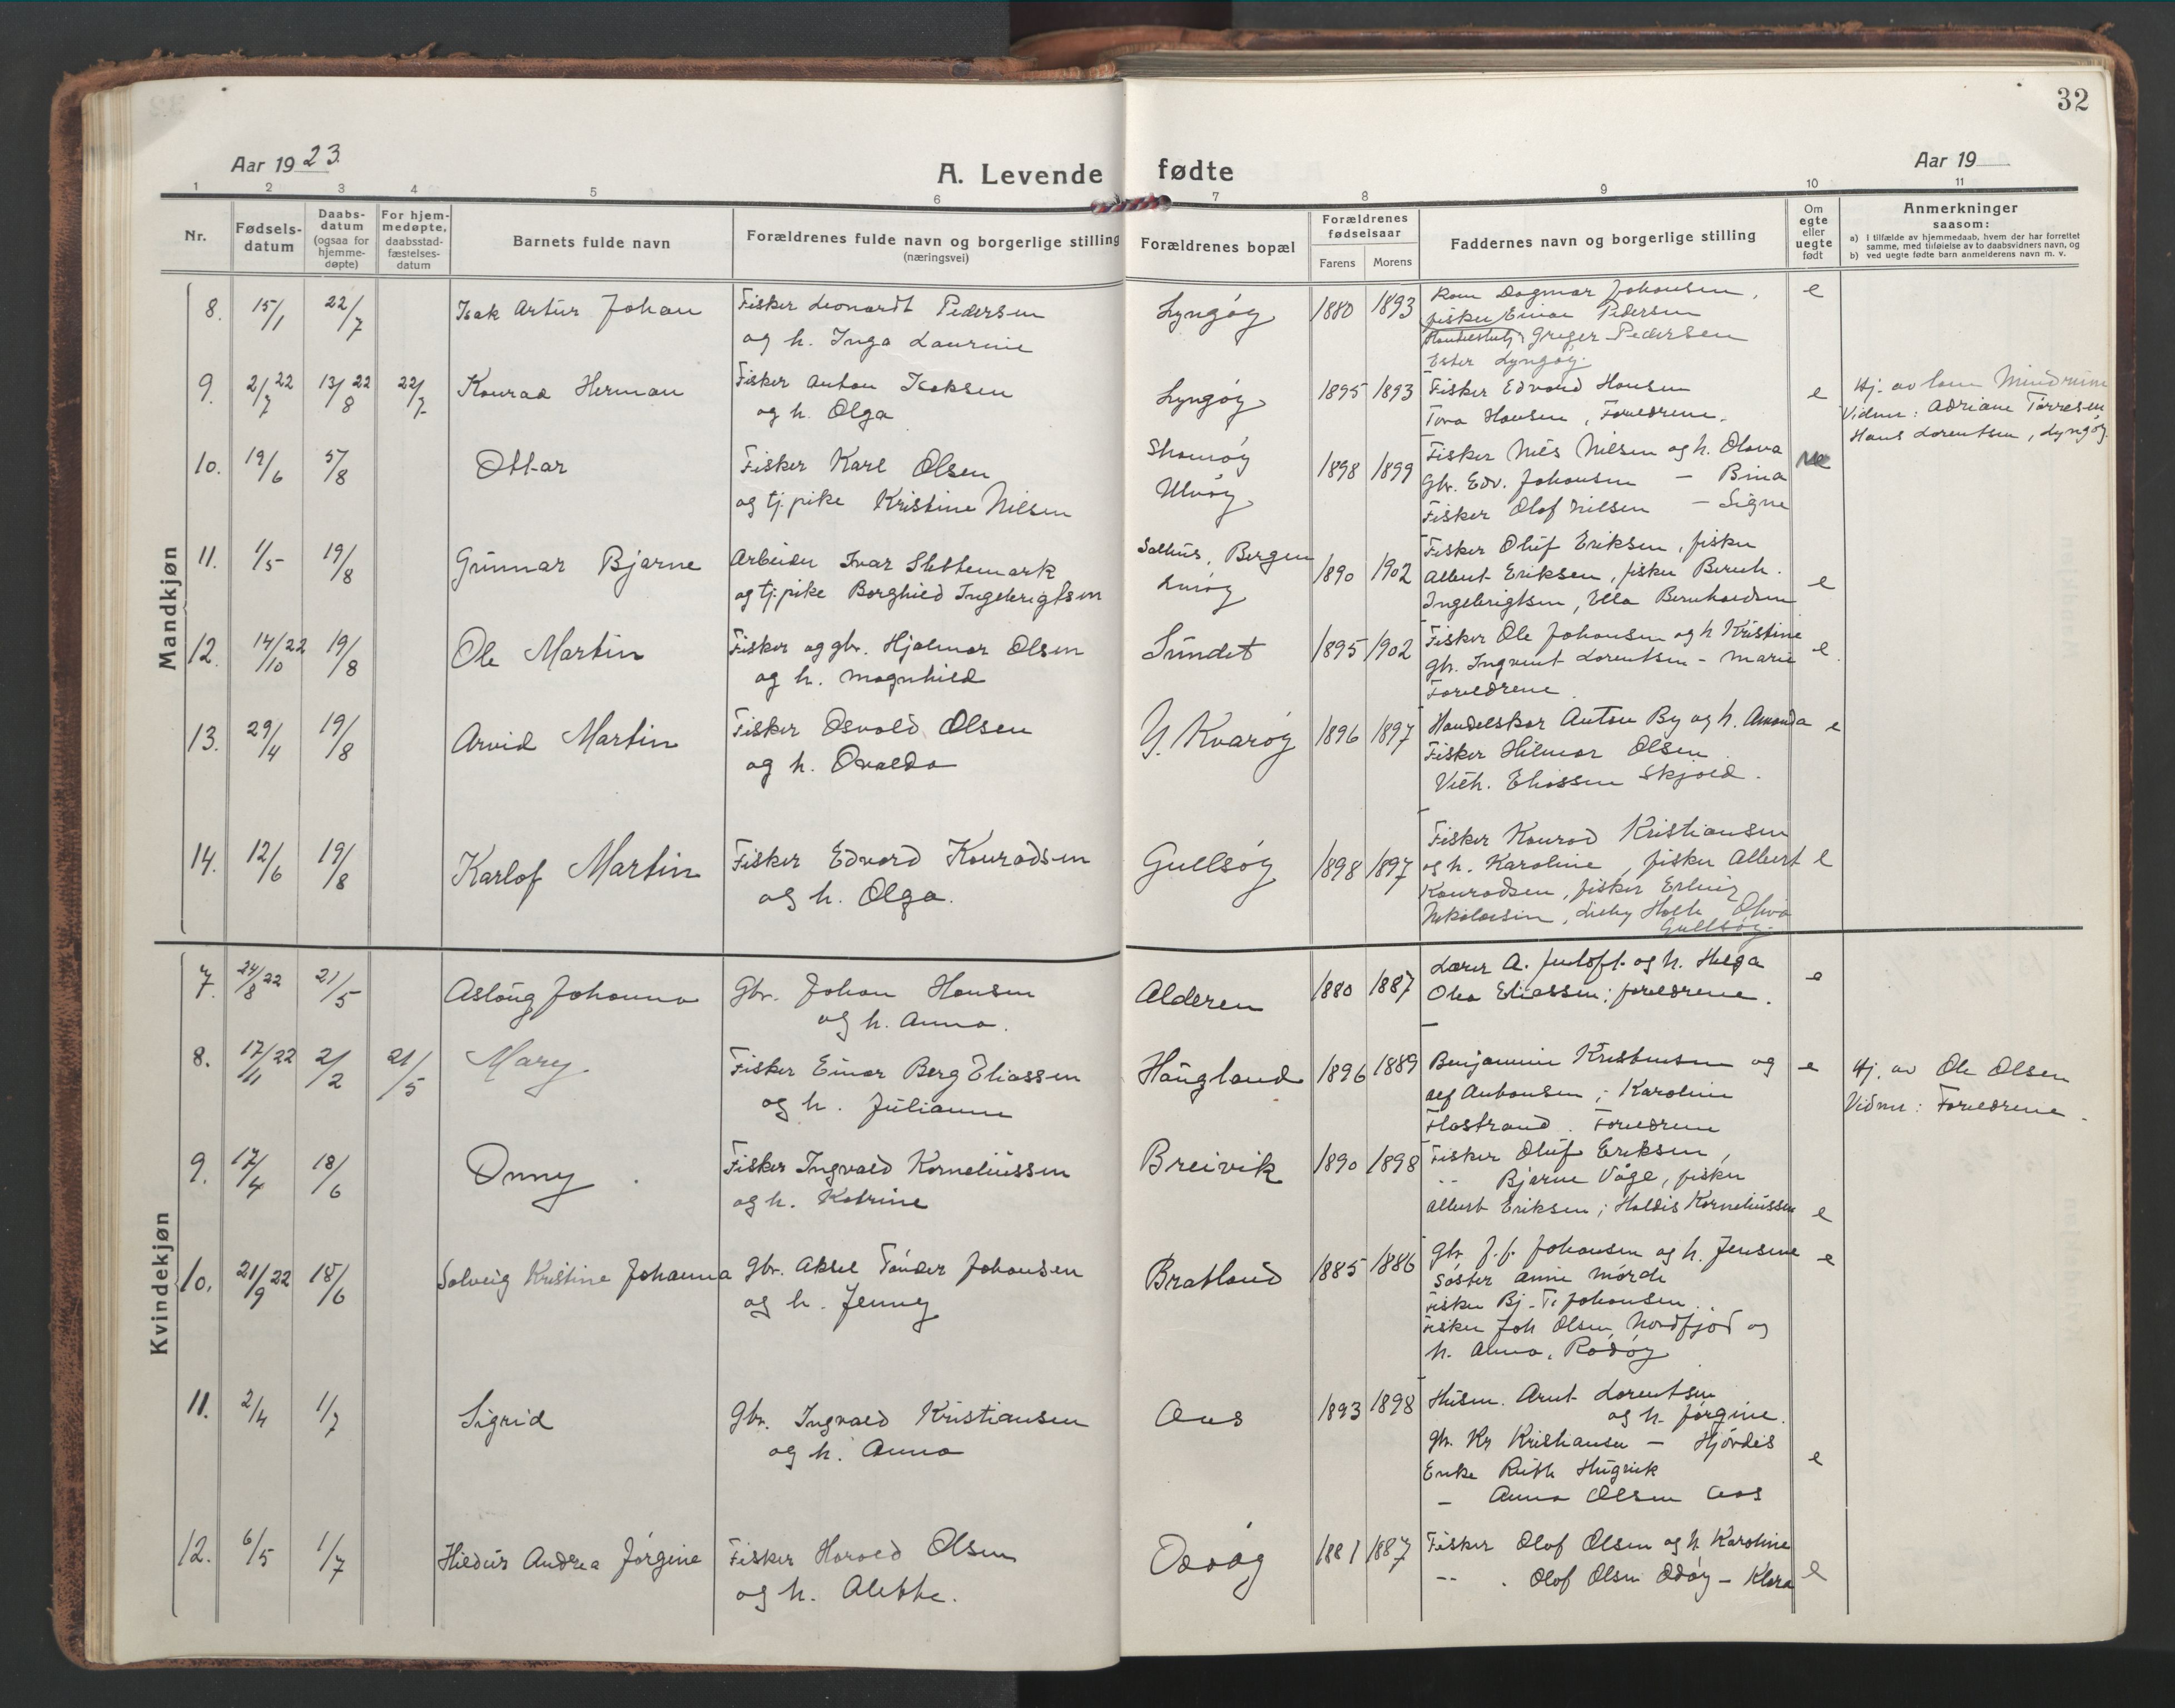 32
Aar 1923.
A. Levende fødte
Aar 19
1 2 3 4 5 6 7 8 9 10 11
Nr.
Fødselsdatum
Daabsdatum (ogsaa for hjemmedøpte)
For hjemmedøpte, daabsstadfæstelsesdatum
Barnets fulde navn
Forældrenes fulde navn og borgerlige stilling (næringsvei)
Forældrenes bopæl
Forældrenes fødselsaar
Farens Morens
Faddernes navn og borgerlige stilling
Om egte eller uegte født
Anmerkninger saasom:
a) I tilfælde av hjemmedaab, hvem der har forrettet samme, med tilføielse av to daabsvidners navn, og
b) ved uegte fødte barn anmelderens navn m. v.
Mandkjøn
8. 15/1 22/7 Isak Artur Johan
Fisker Leonardt Pedersen
og h. Inga Laurine
Lyngöy 1880 1893
Dagmar Johansen,
fisker Einar Pedersen
Greger Pedersen
Ester Lyngöy.
e
9. 2/7 22 13/8 22 22/7 Konrad Herman
Fisker Anton Isaksen
og h. Olga
Lyngöy 1895 1893
Fisker Edvard Hansen
Tora Hansen, Foreldrene.
e
Hj. av
Vidner: Adriane Torresen
Hans Lorentsen, Lyngöy.
10. 19/6 5/8 Ottar
Fisker Karl Olsen
og tj.pike Kristine Nilsen
Ulvöy
1898 1899
Fisker Nils Nilsen og h. Olava
Gbr. Edv. Johansen — Bina
Fisker Olof Nilsen — Signe
11. 1/5 19/8 Gunnar Bjarne
Arbeider Ivar Slettemark
og tj.pike Borghild Ingebrigtsen
Salhus, Bergen
Luröy
1890 1902
Fisker Oluf Eriksen, fisker
Albert Eriksen, fisker Bernh.
Ingebrigtsen, Ella Bernhardsen
e
12. 14/10 22 19/8 Ole Martin
Fisker og gbr. Hjalmar Olsen
og h. Magnhild
Sundet 1895 1902
Fisker Ole Johansen og h Kristine
Gbr. Ingvart Lorentsen - Marie
Foreldrene.
e.
13. 29/4 19/8 Arvid Martin
Fisker Osvald Olsen
og h. Ovalda
Y. Kvaröy 1896 1897
Handelskar Anton By og h. Amanda
Fisker Hilmar Olsen
Vilh. Eliassen Skjold.
e
14. 12/6 19/8 Karlof Martin
Fisker Edvard Konradsen
og h. Olga.
Gullsöy 1898 1897
Fisker Konrad Kristiansen
og h. Karoline, fisker Albert
Konradsen, fisker Erling
Nikolaisen, Holth Oliva
Gullsöy.
e
Kvindekjøn
7. 24/8 22 21/5 Aslaug Johanna
Gbr. Johan Hansen
og h. Anna.
Alderen 1880 1887
Lærer A. Juloft og h. Helga
Olea Eliassen; foreldrene.
e
8. 17/11 22 2/2 21/5 Mary
Fisker Einar Berg Eliassen
og h. Julianne
Haugland 1896 1889
Benjamin Kristensen og
Alf Antonsen; Karoline
Flostrand. Foreldrene
e
Hj. av Ole Olsen
Vidner: Foreldrene.
9. 17/4 18/6 Onny.
Fisker Ingvald Korneliussen
og h. Katrine
Breivik 1890 1898
Fisker Oluf Eriksen,
-- Bjarne Våge, fisker
Albert Eriksen; Haldis Korneliussen
e
10. 21/9 22 18/6 Solveig Kristine Johanna
Gbr. Aksel Tönder Johansen
og h. Jenny
Bratland 1885 1886
Gbr. J. J. Johansen og h. Jensine
Söster Anni Mörch
Fisker Bj. T. Johansen.
Fisker Joh Olsen, Nordfjord og
h. Anna, Rödöy
e
11. 2/4 1/7 Sigrid
Gbr. Ingvald Kristiansen
og h. Anna
Aas 1893 1898
Husm. Arnt Lorentsen
og h. Jörgine.
Gbr. Kr Kristiansen — Hjördis
Enke Ruth
— Anna Olsen Aas
e
12. 6/5 1/7 Hildur Andrea Jörgine
Fisker Harald Olsen
og h. Alette.
1881 1887
Fisker Olof Olsen og h. Karoline
-- . Olof Olsen — Klara
e